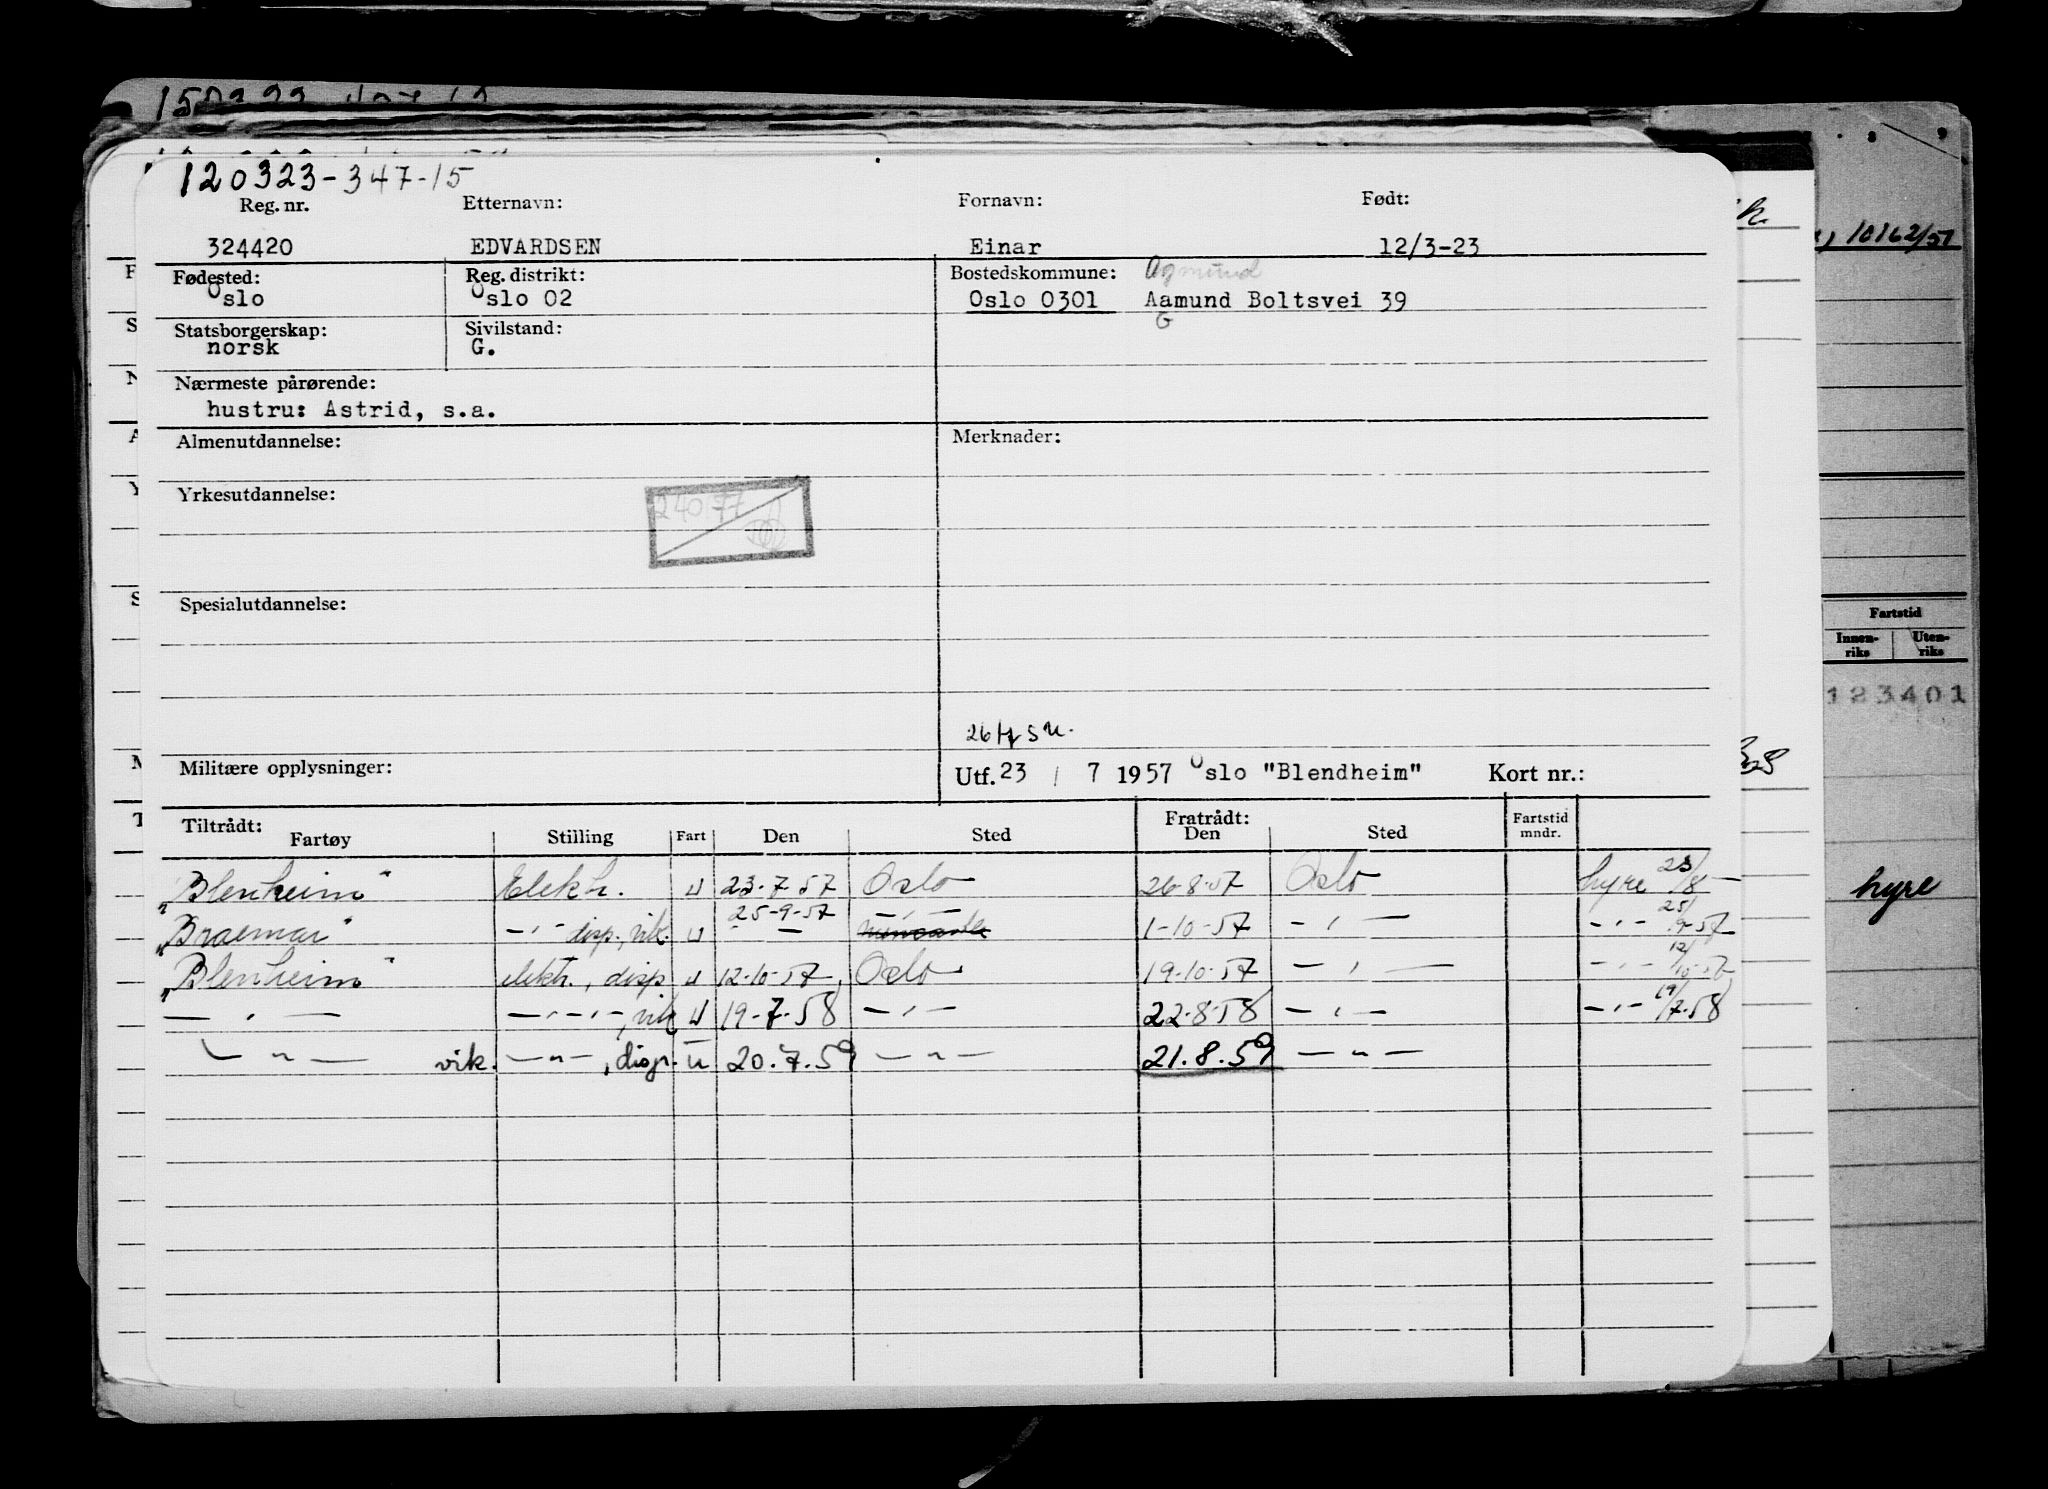 120323-347-15
Reg. nr. Etternavn: Fornavn: Født:
324420 EDVARDSEN Einar 12/3-23
Fødested: Reg. distrikt: Bostedskommune: Agmund
Oslo Oslo 02 Oslo 0301 Aamund Boltsvei 39
G
Statsborgerskap: Sivilstand:
norsk G.
Nærmeste pårørende:
hustru: Astrid, s.a.
Almenutdannelse: Merknader:
Yrkesutdannelse:
240 77
Spesialutdannelse:
Militære opplysninger: Utf. 23 / 7 1957 Oslo "Blendheim" Kort nr.:
Tiltrådt: Fratrådt: Fartstid
Fartøy Stilling Fart Den Sted Den Sted mndr.
"Blenheim" Elektr. u 23-7-57 Oslo 26-8-57 Oslo hyre 23/8 —
25-9-57 — " —
"Braemar" — " — disp., vik. u — " — 1-10-57 — " — — " — 25/9-57
"Blenheim" elektr., disp u 12-10-57 Oslo 19-10-57 — " — — " — 12/10-57
— " — — " — " —, vik u 19-7-58 — " — 22-8-58 — " — — " — 19/7-58
— " — vik. — " —, disp. u 20.7.59 — " — 21.8.59 — " —
10162/57
Fartstid
Innen-riks Uten-riks
123401
hyre